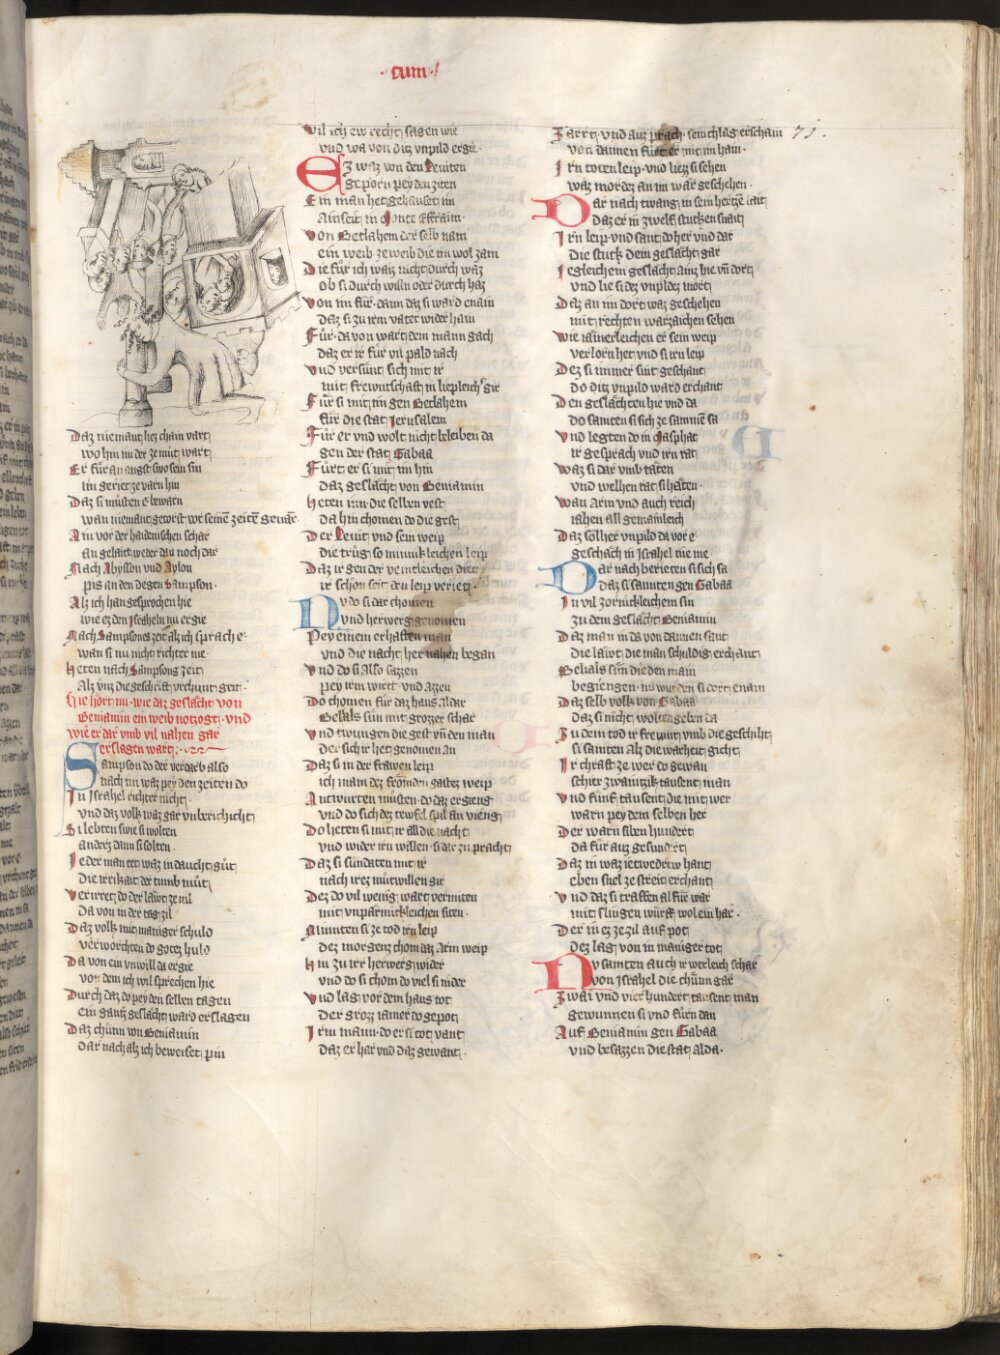 · cum ·
75.
Daz niemant liez chain vart
wo hin im der ze mut wart
Er fur an angst swo sein sin
im geriet ze varn hin
Daz si musten e bewarn
wan niemant gewest wr seinē zeitē gewar
Ain vor der haidenischen schar
an gelait weder dau noch dar
Nach Abysson und Aylon
pis an den degen Sampson·
Als ich han gesprochen hie
wie ez den Israheln nu ergie
Nach Sampsones zeit als ich sprach e·
wan si nu nicht richter me
Heten nach Sampsons zeit
Als vns die geschrift vrchunt geit·
Hie hort nu· wie daz geslächt von
Beniamin ein weib notzogt· vnd
wie er dar vmb vil nahen gar
erslagen wart·
Sampson do der verdarb also
nach im waz pey den zeiten do
In Israhel richter nicht·
vnd daz volk waz gar vnberichticht
Si lebten swie si wolten
anders dann si solten·
Jeder man tet waz in daucht gut
Die irrikait der tumb mut
Verirret do der läwt ze vil
da von in der tag zil
Daz volk mit maniger schuld
verworchten do gotes huld
Da von ein vnwill da ergie
von dem ich wil sprechen hie
Durch daz do pey den selben tagen
ein gantz geslächt ward erslagen
Daz chunn von Beniamin
dar nach als ich beweiset pin
Wil ich ew recht sagen wie
vnd wa von ditz vnpild ergie·
Ez waz von den Leuiten
geporn pey den ziten
Ein man het gehauset im
Ainseit in Monte Effraim·
Von Betlahem der selb nam
ein weib ze weib die im wol zam
Die fur ich waiz nicht durch waz
ob si durch willn oder durch haz
Von im fur· dann daz si ward enain
daz si zu irm vater wider hain
Fur· da von wart dem mann gach
daz er ir fur vil pald nach
Vnd versunt sich mit ir
mit freuntschaft in liepleicher gir
Fur si mit im gen Betlahem
fur die stat Jerusalem
Fur er vnd wolt nicht beleiben da
gen der stat Gabaa
Furt er si mit im hin
daz geslächt von Beniamin
Heten inn die selben vest
da hin chomen do die gest
Der Leuit vnd sein weip
die trug so minnikleichen leip
Daz ir gen der veintleichen diet
ir schon seit den leip veriet·
Nu do si dar chomen
vnd herwerg genomen
Pey einem erhaften man
vnd die nacht her nahen began
Vnd do si also sazzen
pey irm wirt· vnd azzen
Do chomen fur daz haus aldar
Belials sun mit grozzer schar
Vnd twungen die gest von den man
der sich ir het genomen an
Daz si in der frawen leip
ich main dez fromden gastez weip
Antwurten musten· do daz ergieng
vnd do sich dez tewfel spil an vieng
Do heten si mit ir all die nacht
vnd wider irn willen· si dar zu pracht
Daz si sundaten mit ir
nach irez mutwillen gir
Dez do vil wenig wart vermiten
mit vnparmikleichen siten·
Minnten si ze tod irn leip
Dez morgens chom daz Arm weip
Hin zu irr herwerg wider
vnd do si chom do viel si nider
Vnd lag vor dem haus tot
der grozz iamer do gepot
Irm mann· do er si tot vant
daz er har vnd daz gewant
Zarrt· vnd auz prach· sein chlag erschain
von dannen furt er mit im hain·
Irn toten leip· vnd liez si sehen
waz mordez an im wär geschehen·
Dar nach twang in sein hertzē lait
daz er in zwelf stucken snait
Irn leip· vnd sant do her vnd dar
die stuck dem geslächt gar
Iegleichem geslächt ainz hie vn̄ dort
vnd lie si dez vnpildez mort
Daz an im dort waz geschehen
mit rechten warzaichen sehen
Wie iämerleichen er sein weip
verlorn het vnd si irn leip
Dez si immer sint geschant
do ditz vnpild ward erchant
Den geslächten hie vnd da
do samten si sich ze sammē sa
Vnd legten do in Masphat
ir gespräch vnd irn rat
Waz si dar vmb täten
vnd welhen rat si häten·
Wan Arm vnd auch reich
iahen all gemainleich
Daz solher vnpild da vor e
geschäch in Israhel nie me·
Dar nach berieten si sich sa
daz si sannten gen Gabaa
In vil zornickleichem sin
zu dem geslächt Beniamin
Daz man in da von dannen sant
die läwt die man schuldig erchant
Belials sun die den main
begiengen· nu wurden si dort enain
Daz selb volk von Gabaa
daz si nicht wolten geben da
Zu dem tod ir freunt vmb die geschiht
si samten als die warheit gicht
Ir chraft ze wer do gewan
schier zwaintzik tausent man
Vnd funf tausent die mit wer
warn pey dem selben her
Der warn siben hundert
da fur auz gesundert
Daz in waz ietwedrew hant
eben snel ze streit erchant
Vnd daz si traffen al fur war
mit slingen wurff wol ein har·
Der in ez ze zil auf pot
Dez lag von in maniger tot
Nu samten auch ir werleich schar
von Israhel die chunn gar
Zwai vnd vier hundert tausent man
gewunnen si vnd furn dan
Auf Beniamin gen Gabaa
vnd besazzen die stat alda·